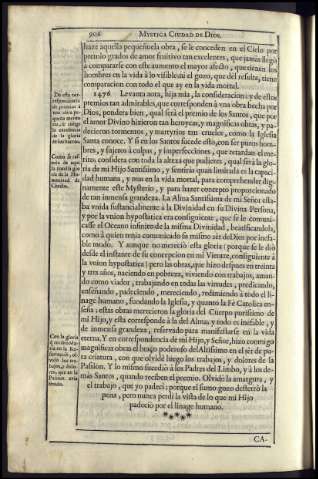 906 MYSTICA CIUDAD DE DIOS.
haze aquella pequeñuela obra, se le conceden en el Cielo por
premio grados de amor fruitivo tan excelentes, que jamàs llegò
à compararse con este aumento el mayor afecto, que tienen los
hombres en la vida à lo visible; ni el gozo, que del resulta, tiene
comparacion con todo el que ay en la vida mortal.
1476. Levanta aora, hija mia, la consideracion; y de estos
premios tan admirables, que corresponden à vna obra hecha por
Dios, pondera bien, qual serà el premio de los Santos, que por
el amor Divino hizieron tan heroycas, y magnificas obras, y pa-
decieron tormentos, y martyrios tan crueles, como la Iglesia
Santa conoce. Y si en los Santos sucede esto, con ser puros hom-
bres, y sujetos à culpas, y imperfecciones, que retardan el me-
rito; considera con toda la alteza que pudieres, qual serà la glo-
ria de mi Hijo Santissimo, y sentiràs quan limitada es la capaci-
dad humana, y mas en la vida mortal, para comprehender dig-
namente este Mysterio, y para hazer concepto proporcionado
de tan inmensa grandeza. La Alma Santissima de mi Señor esta-
ba vnida sustancialmente à la Divinidad en su Divina Persona,
y por la vnion hypostatica era consiguiente, que se le comuni-
casse el Oceano infinito de la misma Divinidad, beatificandola,
como à quien tenia comunicado su mismo sèr de Dios por inefa-
ble modo. Y aunque no mereciò esta gloria (porque se le diò
desde el instante de su concepcion en mi Vientre, consiguiente à
la vnion hypostatica) pero las obras, que hizo despues en treinta
y tres años, naciendo en pobreza, viviendo con trabajos, aman-
do como viador, trabajando en todas las virtudes, predicando,
enseñando, padeciendo, mereciendo, redimiendo à todo el li-
nage humano, fundando la Iglesia, y quanto la Fè Catolica en-
seña; estas obras merecieron la gloria del Cuerpo purissimo de
mi Hijo, y esta corresponde à la del Alma, y todo es inefable, y
de inmensa grandeza, reservado para manifestarse en la vida
eterna. Y en correspondencia de mi Hijo, y Señor, hizo conmigo
magnificas obras el braço poderoso del Altissimo en el sèr de pu-
ra criatura, con que olvidè luego los trabajos, y dolores de la
Passion. Y lo mismo sucediò à los Padres del Limbo, y à los de-
màs Santos, quando reciben el premio. Olvidè la amargura, y
el trabajo, que yo padecì; porque el sumo gozo desterrò la
pena, pero nunca perdì la vista de lo que mi Hijo
padeciò por el linage humano.
CA-